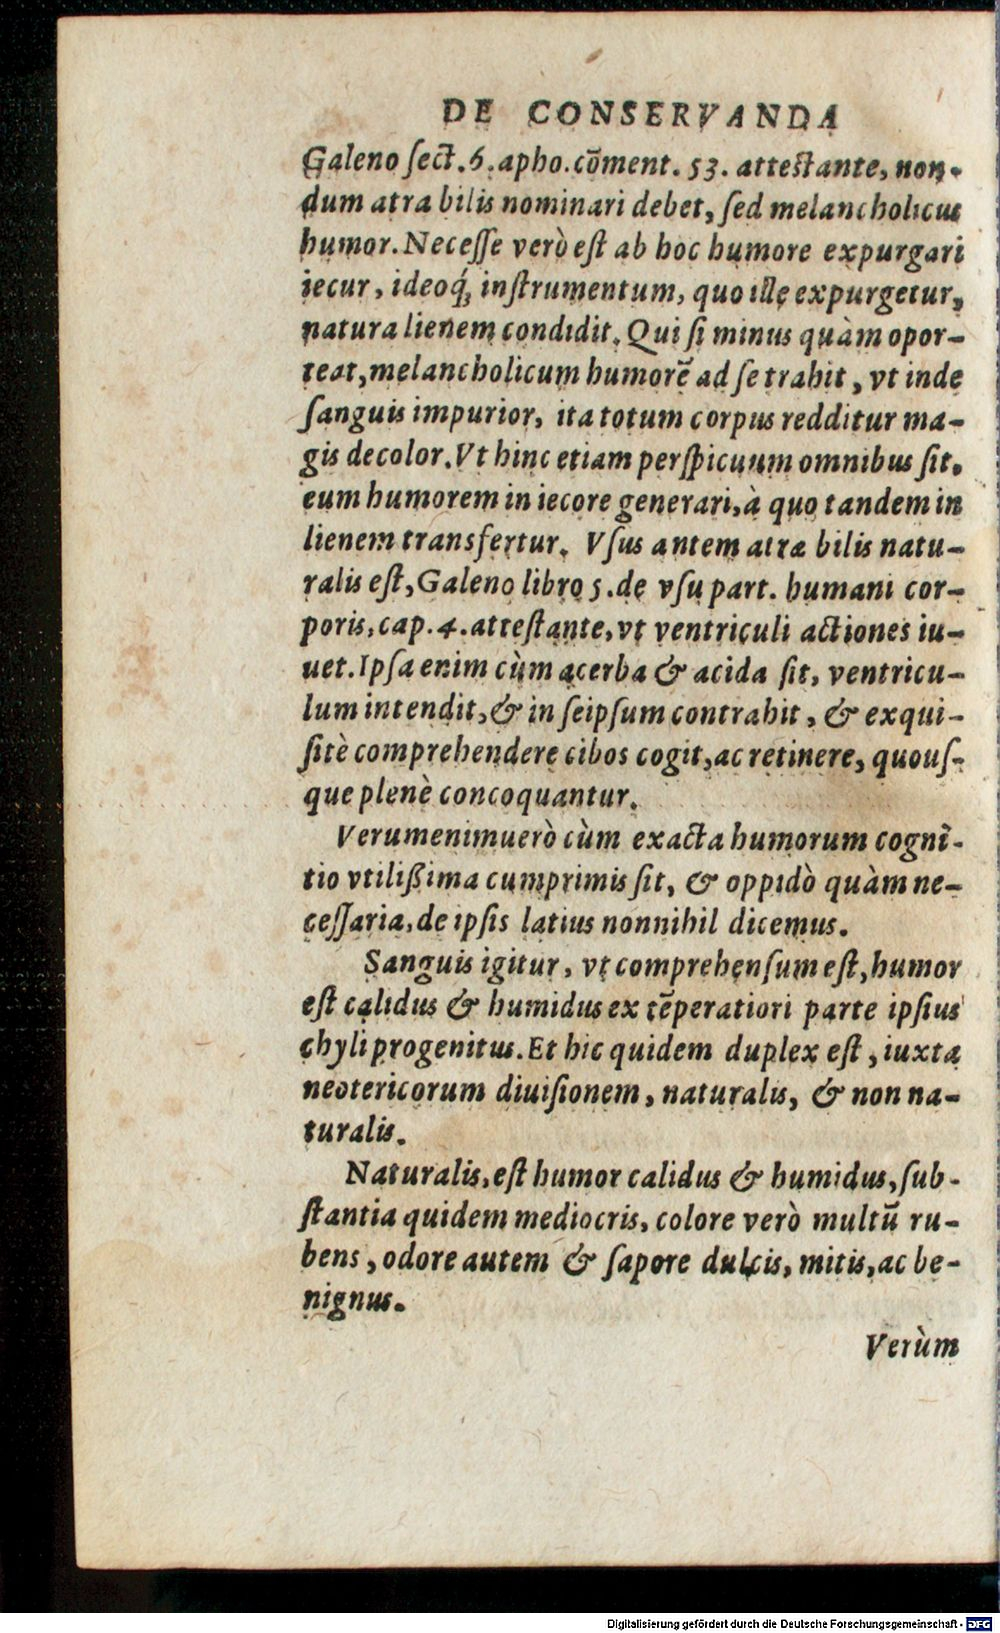 DE CONSERVANDA
Galeno ſect.6.apho.cōment. 53. atteſtante, non-
dum atra bilis nominari debet, ſed melancholicus
humor. Neceſſe verò eſt ab hoc humore expurgari
iecur, ideoq́; inſtrumentum, quo ille expurgetur,
natura lienem condidit. Qui ſi minus quàm opor-
teat, melancholicum humorē ad ſe trahit, vt inde
ſanguis impurior, ita totum corpus redditur ma-
gis decolor. Vt hinc etiam perſpicuum omnibus ſit,
eum humorem in iecore generari, à quo tandem in
lienem transfertur. Vſus antem atræ bilis natu-
ralis eſt, Galeno libro 5. de vſu part. humani cor-
poris, cap. 4. atteſtante, vt ventriculi actiones iu-
uet. Ipſa enim cùm acerba & acida ſit, ventricu-
lum intendit, & in ſeipſum contrahit, & exqui-
ſitè comprehendere cibos cogit, ac retinere, quouſ-
que plenè concoquantur.
Verumenimuerò cùm exacta humorum cogni-
tio vtilißima cumprimis ſit, & oppidò quàm ne-
ceſſaria, de ipſis latius nonnihil dicemus.
Sanguis igitur, vt comprehenſum eſt, humor
eſt calidus & humidus ex tēperatiori parte ipſius
chyli progenitus. Et hic quidem duplex eſt, iuxta
neotericorum diuiſionem, naturalis, & non na-
turalis.
Naturalis, eſt humor calidus & humidus, ſub-
ſtantia quidem mediocris, colore verò multū ru-
bens, odore autem & ſapore dulcis, mitis, ac be-
nignus.
Verùm
Digitalisierung gefördert durch die Deutsche Forschungsgemeinschaft - DFG